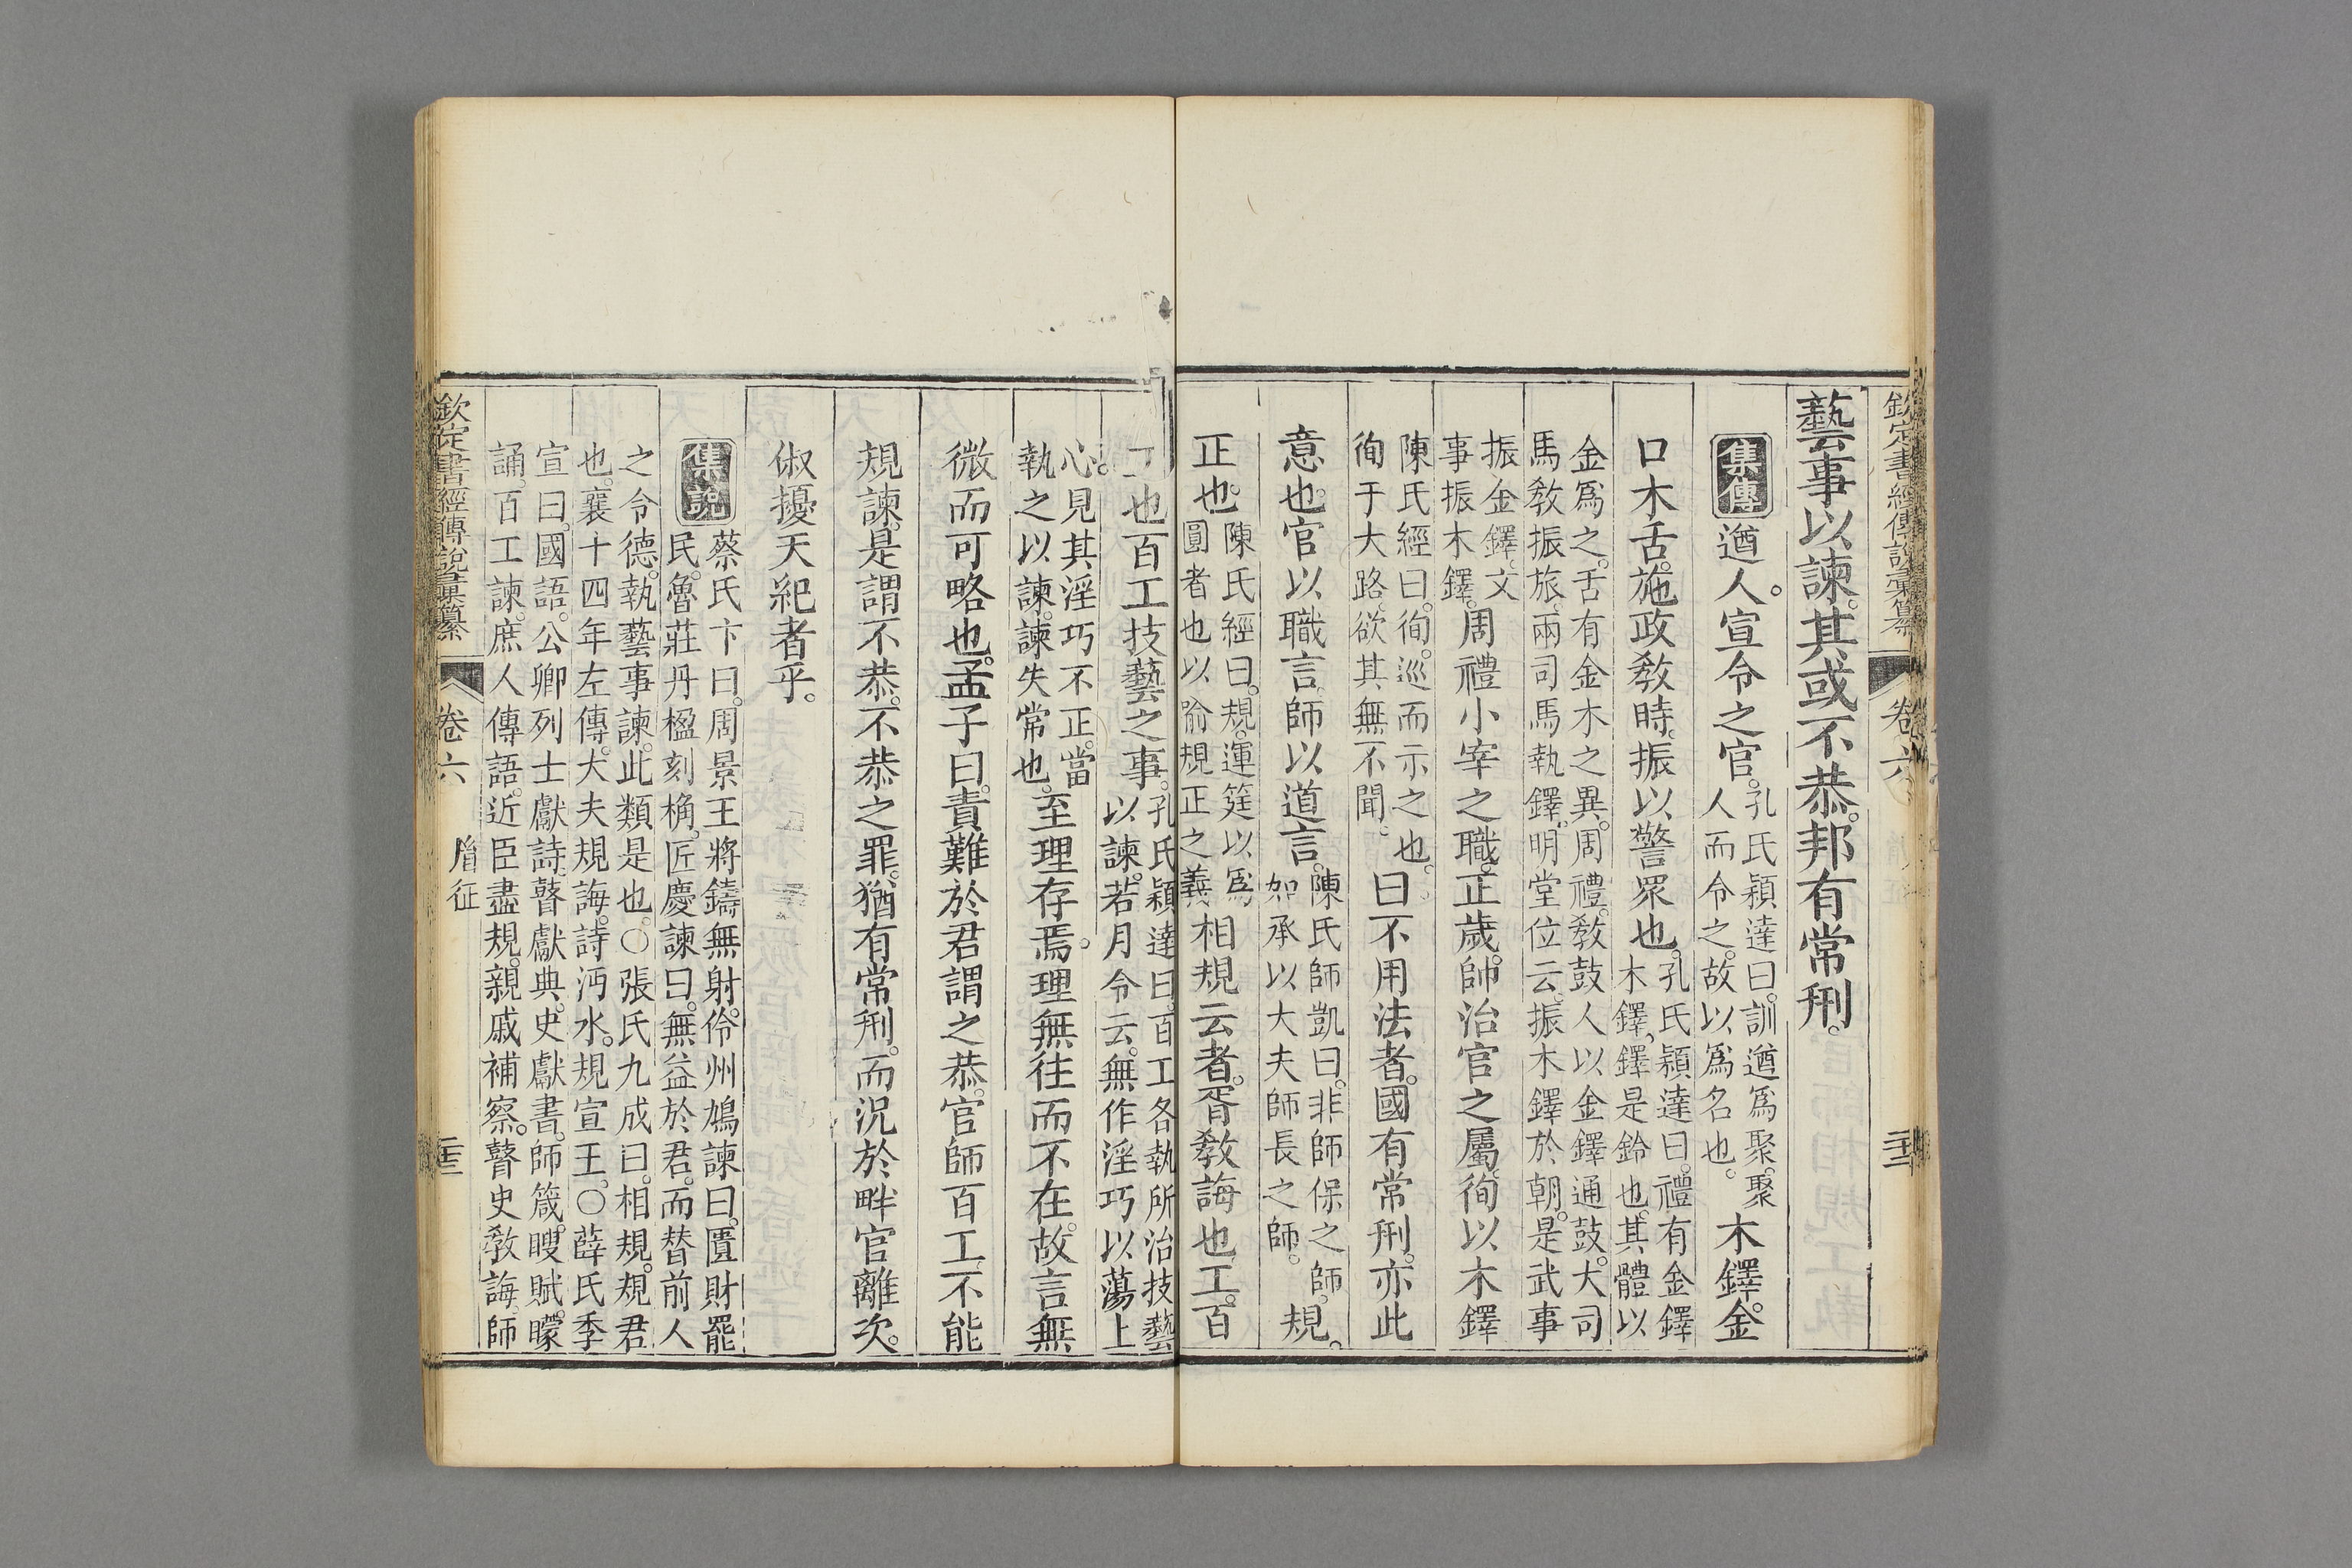 欽定書經傳說彙纂 卷六 二十二
藝事以諫。其或不恭。邦有常刑。
集傳 遒人。宣令之官。孔氏穎達曰。訓遒爲聚。聚人而令之。故以爲名也。木鐸。金
口木舌。施政教時。振以警眾也。孔氏穎達曰。禮有金鐸木鐸。鐸是鈴也。其體以
金爲之。舌有金木之異。周禮。教鼓人以金鐸通鼓。大司馬教振旅。兩司馬執鐸。明堂位云。振木鐸於朝。是武事
振金鐸。文事振木鐸。周禮小宰之職。正歲。帥治官之屬。徇以木鐸
陳氏經曰。徇。巡而示之也。徇于大路。欲其無不聞。曰不用法者。國有常刑。亦此
意也。官以職言。師以道言。陳氏師凱曰。非師保之師。如承以大夫師長之師。規。
正也。陳氏經曰。規。運筳以爲圓者也。以喻規正之義相規云者。胥教誨也。工。百
工也。百工技藝之事。孔氏穎達曰。百工各執所治技藝以諫。若月令云。無作淫巧以蕩上
心。見其淫巧不正。當執之以諫。諫失常也。至理存焉。理無往而不在。故言無
微而可略也。孟子曰。責難於君謂之恭。官師百工。不能
規諫。是謂不恭。不恭之罪。猶有常刑。而況於畔官離次。
俶擾天紀者乎。
集說 蔡氏卞曰。周景王將鑄無射。伶州鳩諫曰。匱財罷民。魯莊丹楹刻桷。匠慶諫曰。無益於君。而替前人
之令德。執藝事諫。此類是也。○張氏九成曰。相規。規君也。襄十四年左傳。大夫規誨。詩沔水。規宣王。○薛氏季
宣曰。國語。公卿列士獻詩。瞽獻典。史獻書。師箴。瞍賦。矇誦。百工諫。庶人傳語。近臣盡規。親戚補察。瞽史教誨。師
欽定書經傳說彙纂 卷六 胤征 二十三